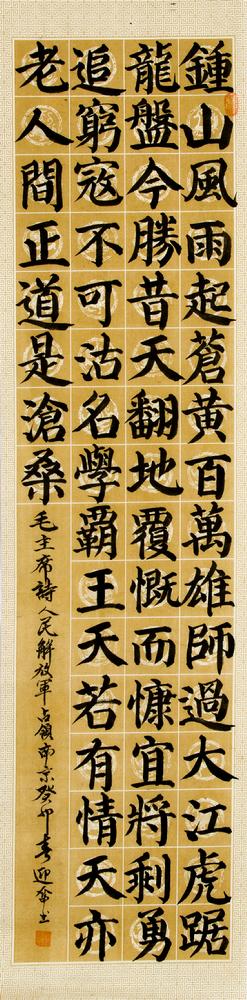 鍾山風雨起蒼黃百萬雄師過大江虎踞
龍盤今勝昔天翻地覆慨而慷宜將剩勇
追窮寇不可沽名學霸王天若有情天亦
老人間正道是滄桑
毛主席詩人民解放軍占領南京癸卯春迎年書